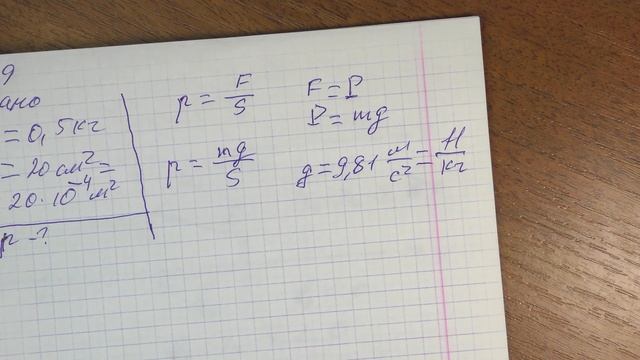 9
ано
= 0,5 кг
= 20 см² =
20·10⁻⁴ м²
p - ?
p = F/S
p = mg/S
F = P
P = mg
g = 9,81 м/с² = Н/кг